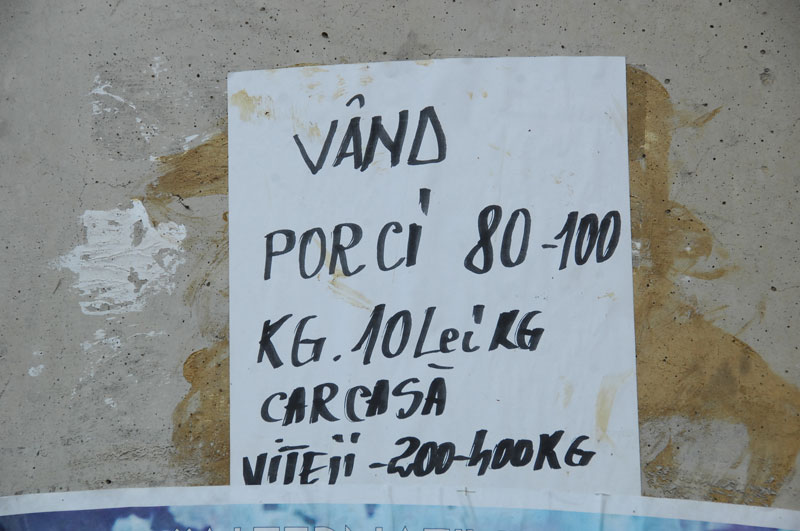 VÂND
PORCI 80-100
KG. 10 Lei KG
CARCASĂ
VIŢEII -200-400KG